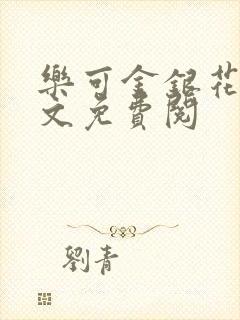 樂可金銀花
文免費閱
劉青